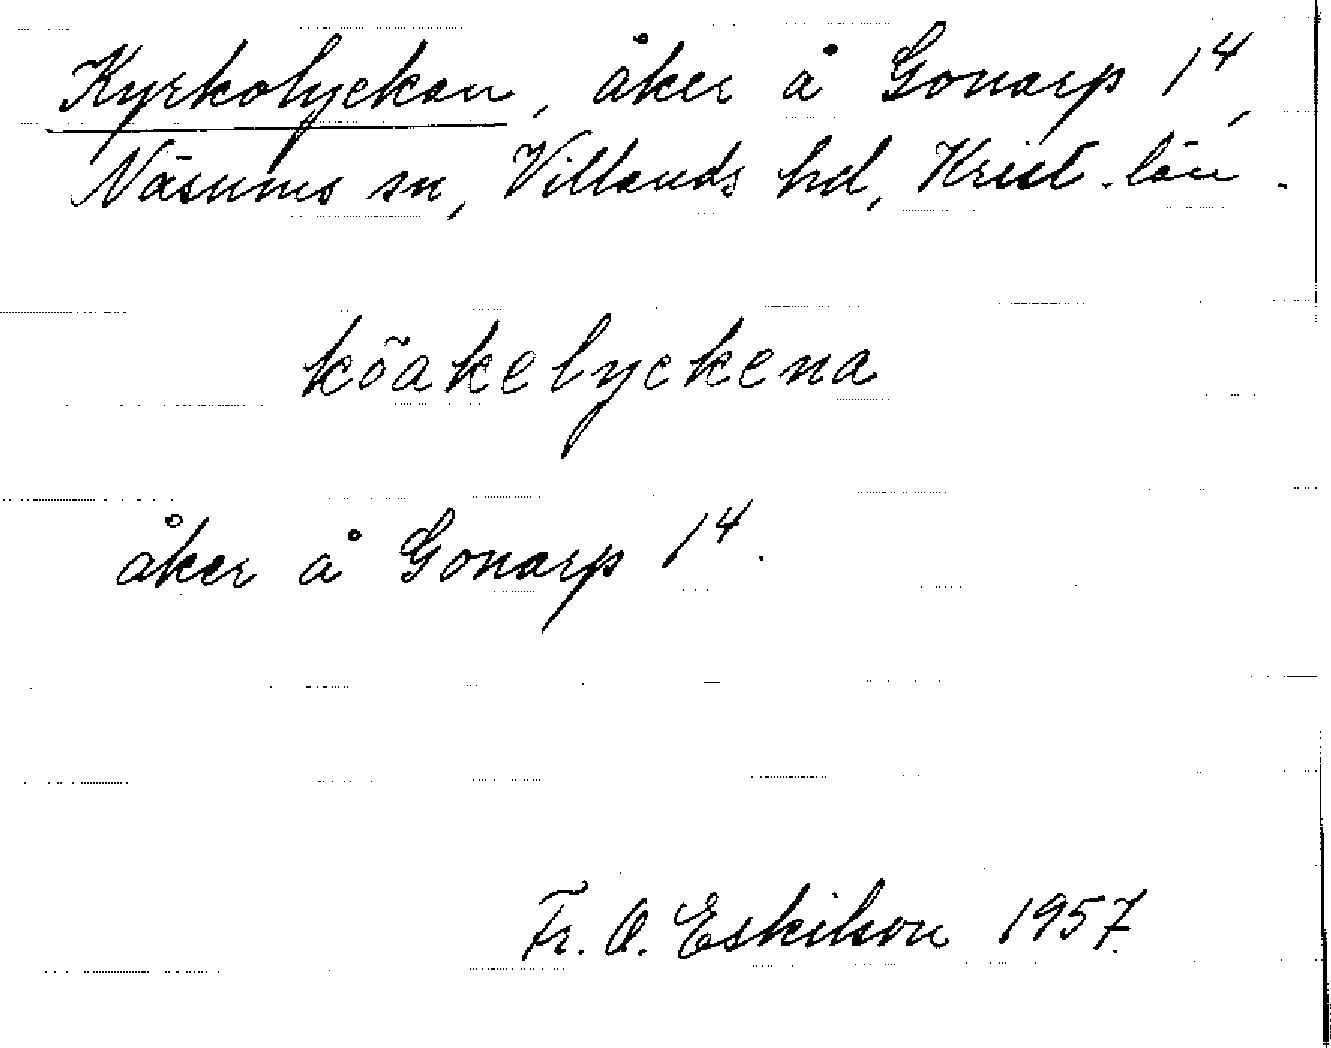 Kyrkolyckan, åker å Gonarp 1⁴,
Näsums sn, Villands hd, Krist. län.
köakelyckena
åker å Gonarp 1⁴.
Fr. O. Eskilson 1957.